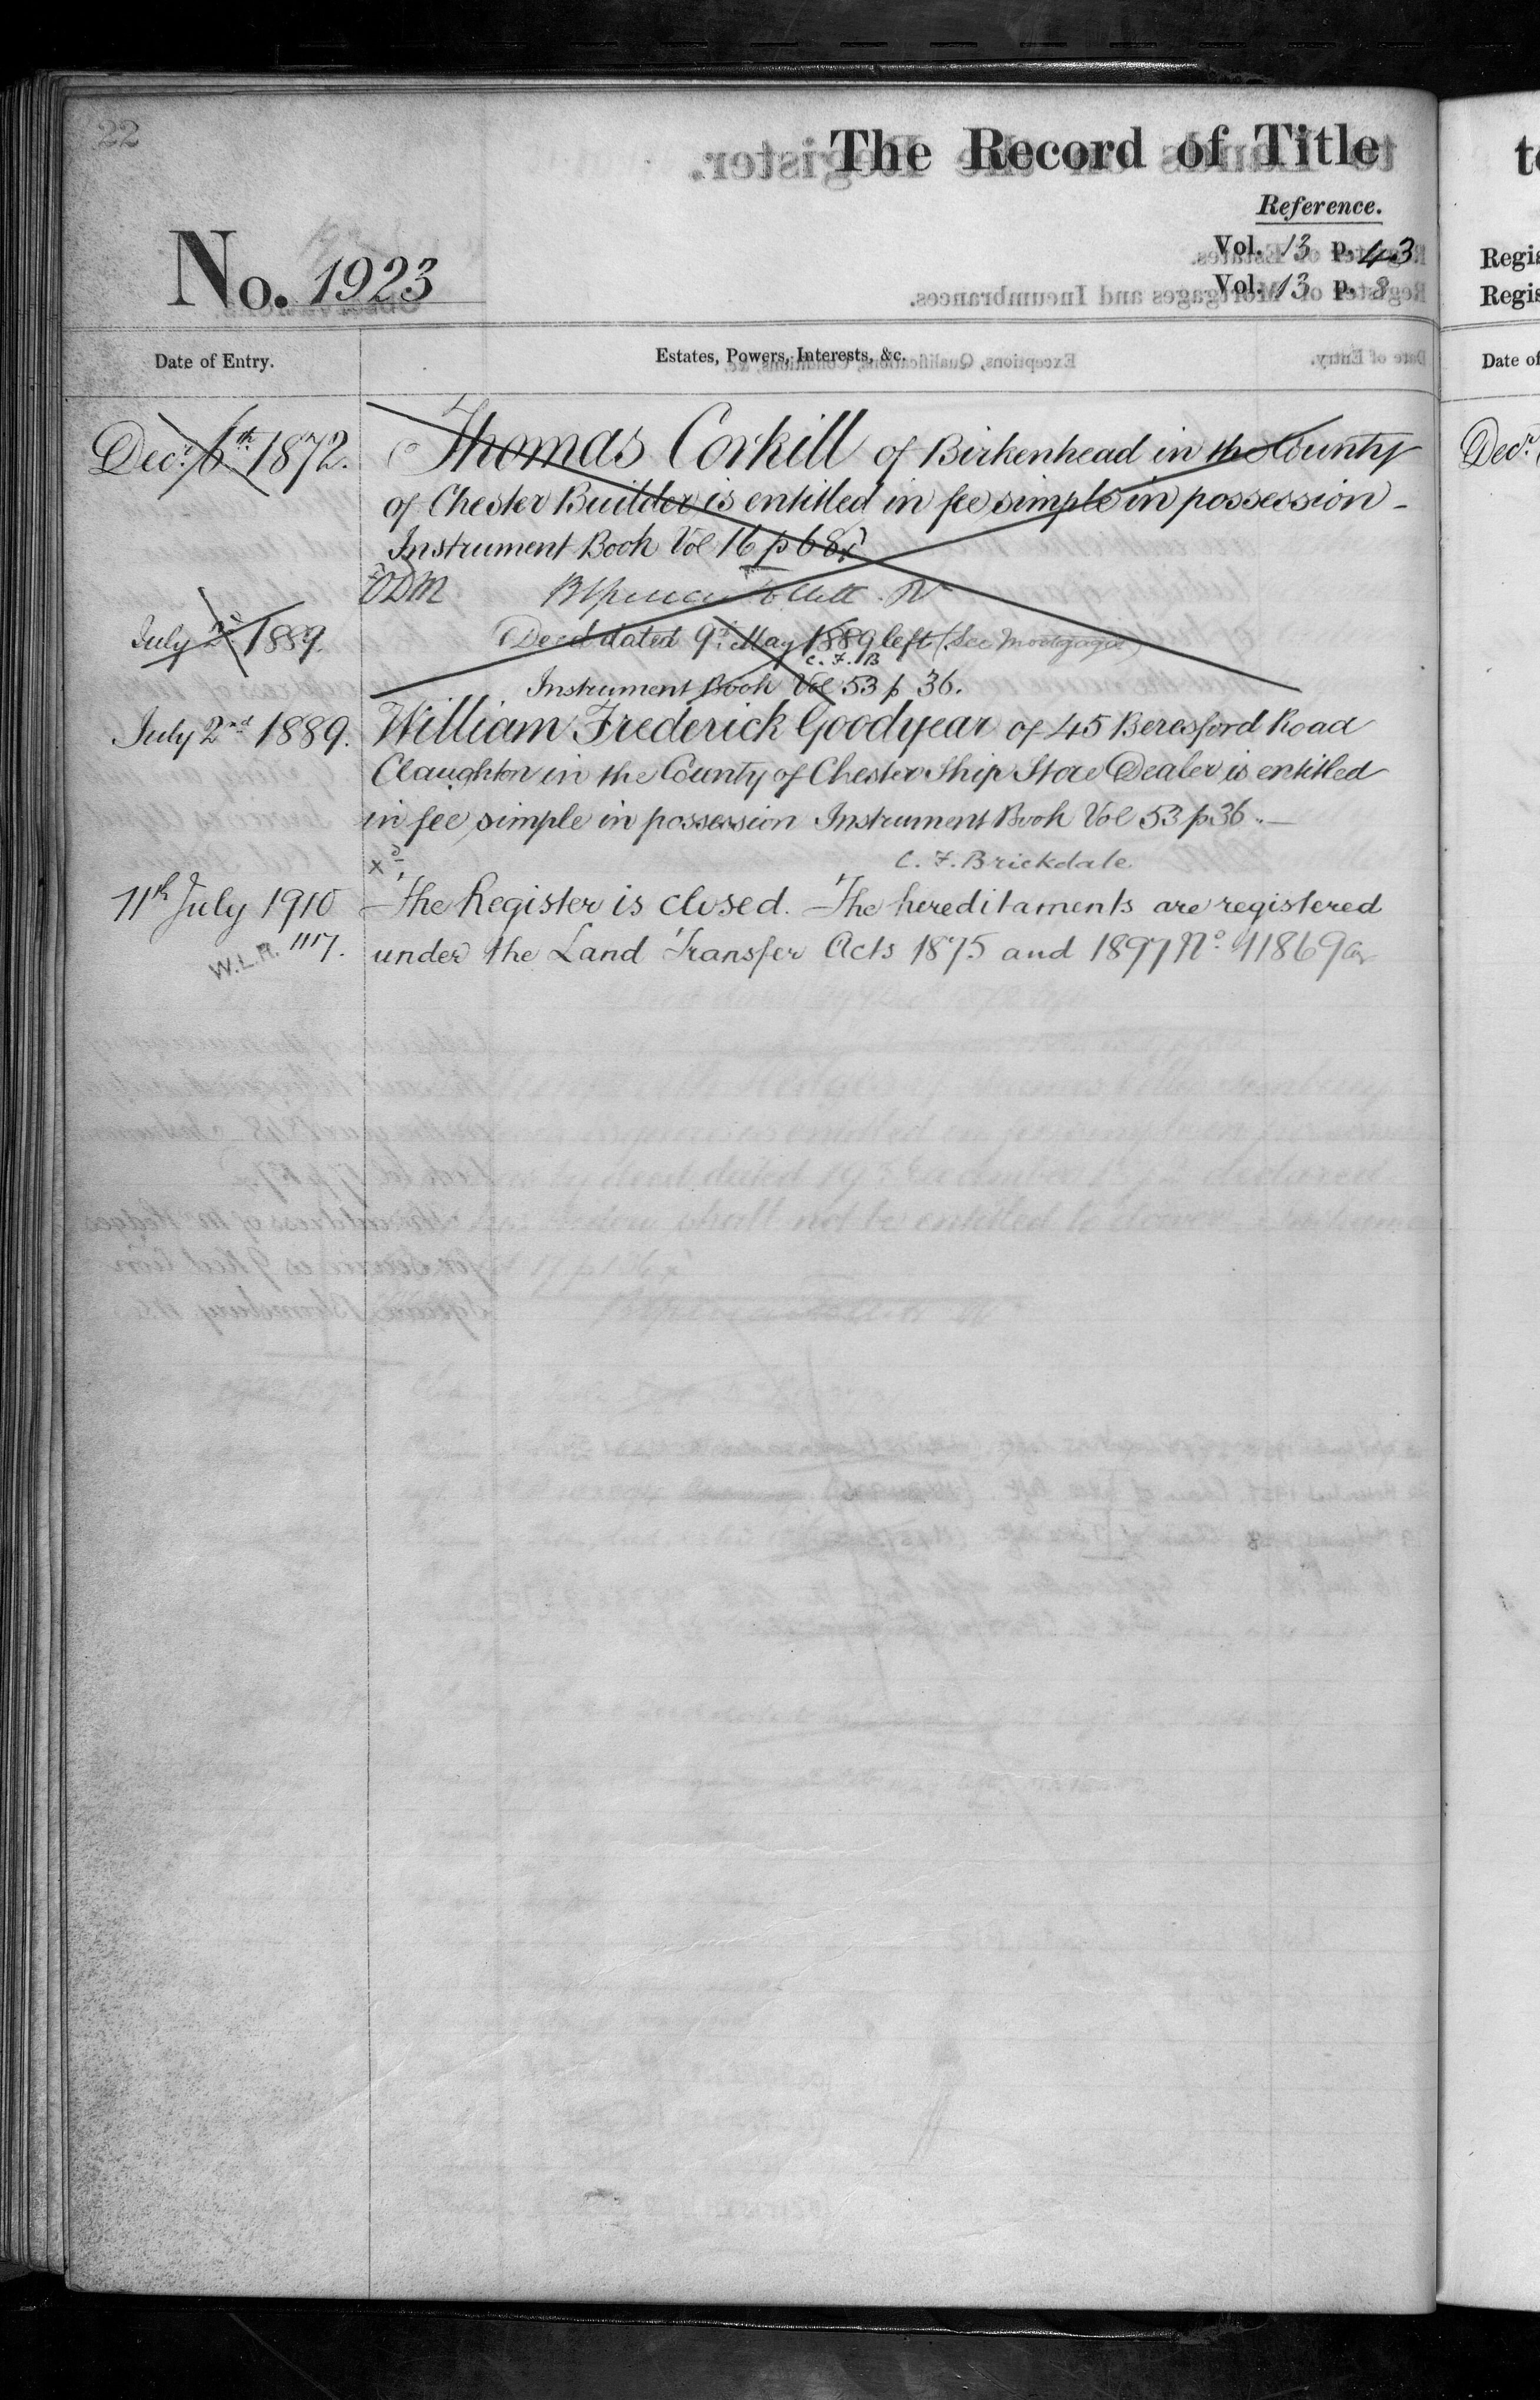 22
The Record of Title
Reference.
No. 1923
Vol. 13 p. 43.
Vol. 13 p. 8
Date of Entry.
Estates, Powers, Interests, &c.
Decr. 6th 1872.
Thomas Corkill of Birkenhead in the County
of Chester Builder is entitled in fee simple in possession -
Instrument Book Vol 16 p 68
July 2nd 1889.
Deed dated 9th May 1889 left (See Mortgages)
C. F. B
Instrument Book Vol 53 p 36.
July 2nd 1889.
William Frederick Goodyear of 45 Beresford Road
Claughton in the County of Chester Ship Store Dealer is entitled
in fee simple in possession Instrument Book Vol 53 p 36.
C. F. Brickdale.
11th July 1910
The Register is closed. The hereditaments are registered
W.L.R. 1117.
under the Land Transfer Acts 1875 and 1897 No.
Regis
Regis
Date of
Decr.